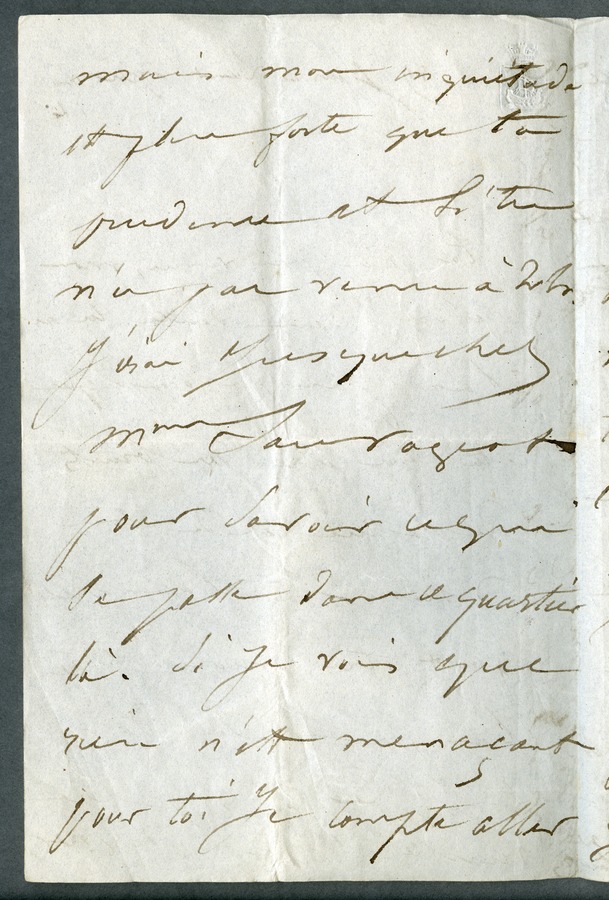 mais mon inquiétude
est plus forte que ta
prudence et si tu
n'es pas venu à
J'irai jusque chez
Mme Sauvageot
pour savoir ce qui
se passe dans ce quartier
là. Si Je vois que
rien n'est menaçant
pour toi Je compte aller